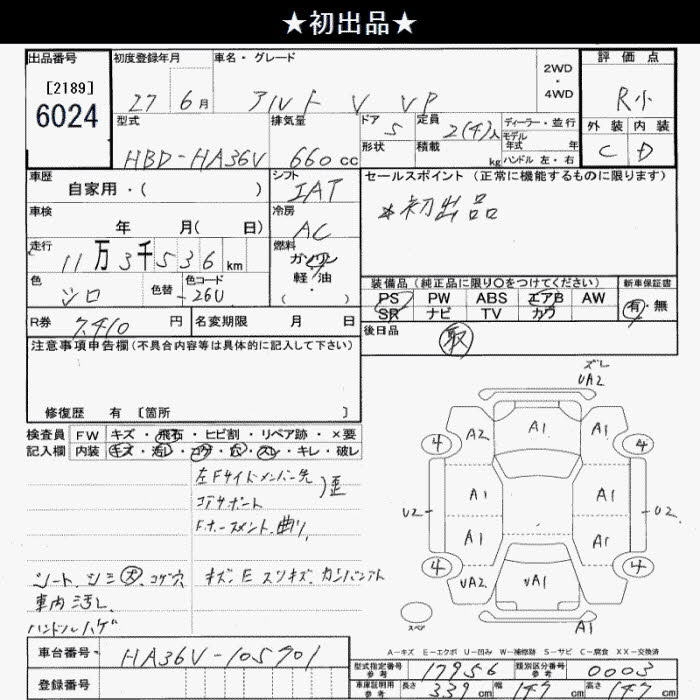 ★初出品★
出品番号 初度登録年月 車名・グレード 2WD ・ 4WD 評価点
[2189]
6024
27 6月 アルト V VP R小
型式 排気量 ドア 定員 ディーラー・並行 外装 内装
HBD-HA36V 660cc 5 2(4)人 モデル 年式 年 C D
形状 積載 kg ハンドル 左・右
車歴 シフト セールスポイント (正常に機能するものに限ります)
自家用・( ) IAT *初出品
車検 冷房
年 月( 日) AC
走行 燃料
11万3千536km ガソリン
軽・油
( )
色 色替 色コード 装備品 (純正品に限り○をつけてください) 新車保証書
シロ 26U PS PW ABS エアB AW 有・無
SR ナビ TV カワ
R券 7410 円 名変期限 月 日 後日品 取
注意事項申告欄(不具合内容等は具体的に記入して下さい)
修復歴 有 [箇所 ]
検査員 FW キズ・飛石・ヒビ割・リペア跡・×要
記入欄 内装 キズ・汚レ・コゲ・穴・スレ・キレ・破レ
左Fサイドメンバー先
コアサポート
F.ホースメント 曲り
シート、シミ大 コゲ穴
車内汚レ
ハンドルハゲ
ズレ
UA2
A2 A1 A1
4 4
A1 A1
U2 U2
A1 A1
4 4
UA2 UA1 A1
スペア
A-キズ E-エクボ U-凹み W-補修跡 S-サビ C-腐食 XX-交換済
車台番号 HA36V-105701
登録番号
型式指定番号 参考 17956 類別区分番号 参考 0003
車庫証明用 参考 長さ 339cm 幅 147cm 高さ 147cm